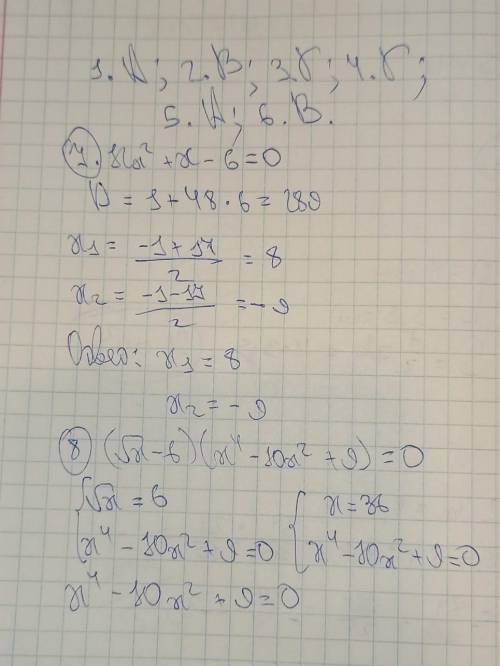 1. А; 2. В; 3. Г; 4. Г;
5. А; 6. В.
7. 12x² + x - 6 = 0
D = 1 + 48 · 6 = 289
x₁ = (-1 + 17)/2 = 8
x₂ = (-1 - 17)/2 = -9
Ответ: x₁ = 8
x₂ = -9
8 (√x - 6)(x⁴ - 10x² + 9) = 0
√x = 6 { x = 36
x⁴ - 10x² + 9 = 0 x⁴ - 10x² + 9 = 0
x⁴ - 10x² + 9 = 0